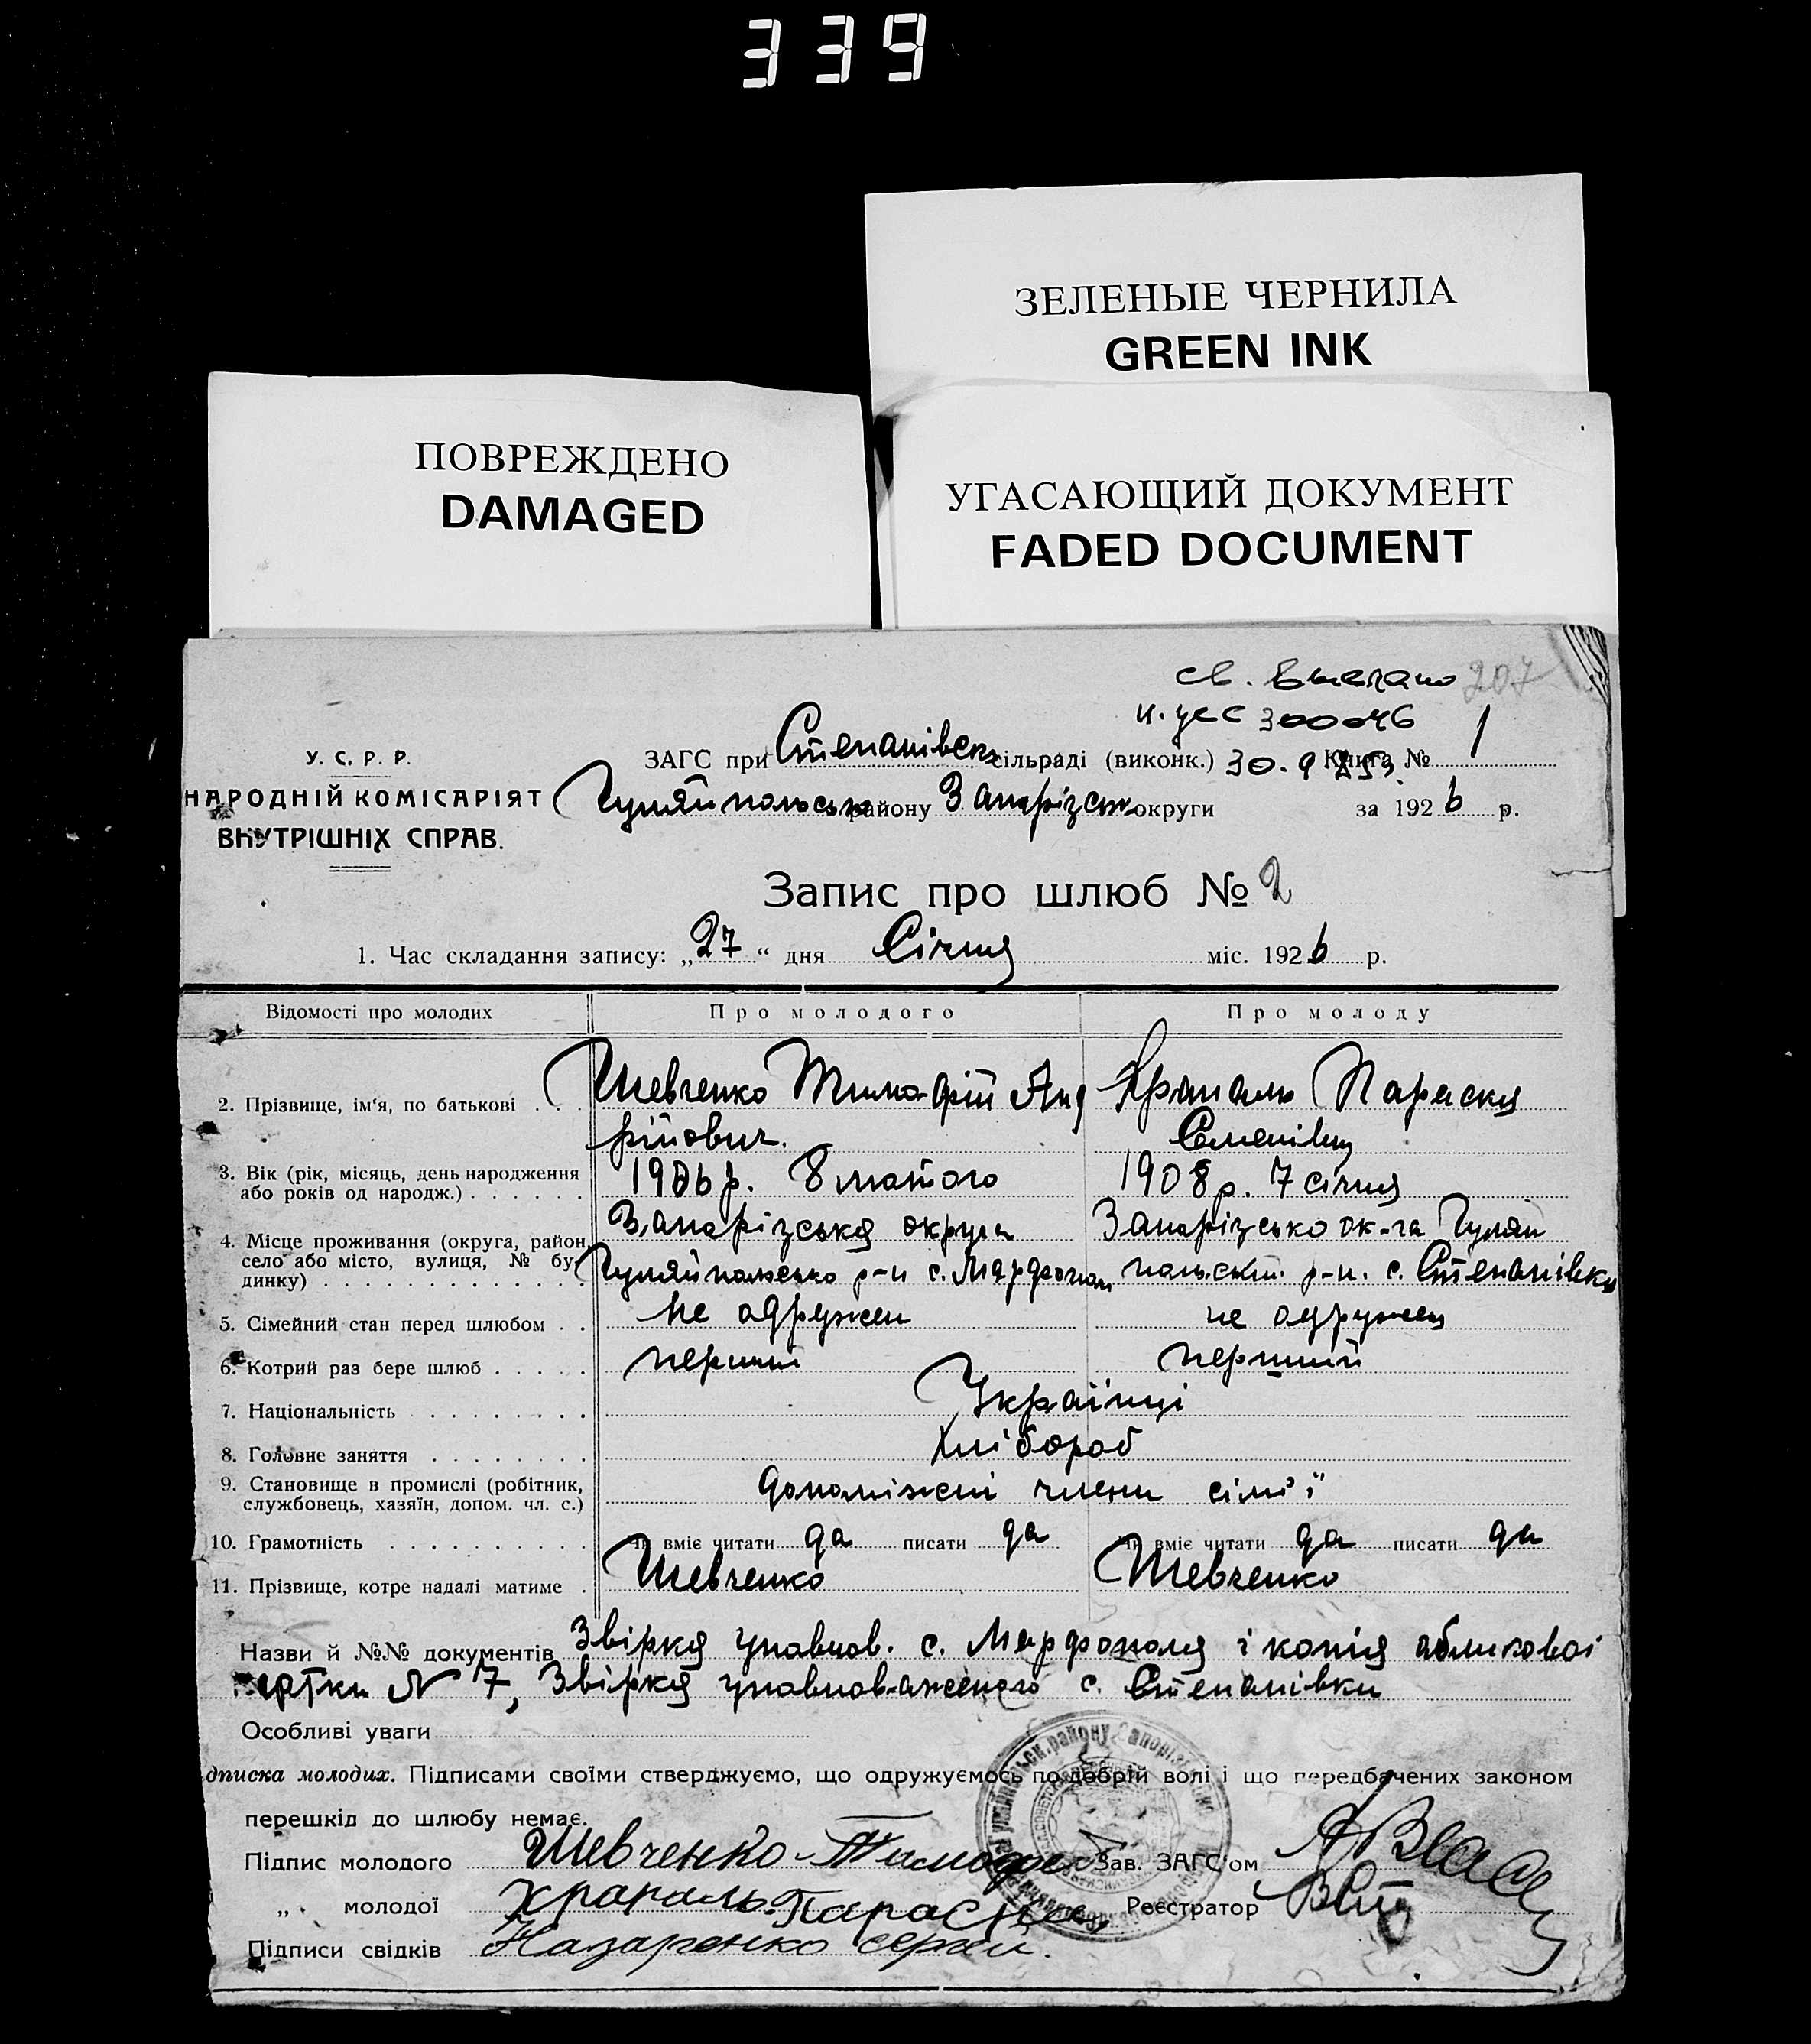 339
ЗЕЛЕНЫЕ ЧЕРНИЛА
GREEN INK
ПОВРЕЖДЕНО
DAMAGED
УГАСАЮЩИЙ ДОКУМЕНТ
FADED DOCUMENT
св. 207
300046
У. С. Р. Р.
НАРОДНІЙ КОМІСАРІЯТ
ВНУТРІШНІХ СПРАВ.
ЗАГС при Степанівськ сільраді (виконк.) 30.9 Книга № 1
Гуляйпольськ району Запорізьк округи за 1926 р.
Запис про шлюб № 2
1. Час складання запису: „27“ дня Січня міс. 1926 р.
Відомості про молодих Про молодого Про молоду
2. Прізвище, ім‘я, по батькові . . . Шевченко Тимофій Анд Храпаль Параска
рійович. Семенівна
3. Вік (рік, місяць, день народження 1906 р. 8 лютого 1908 р. 7 січня
або років од народж.) . . . . . .
4. Місце проживання (округа, район, Запорізська округа Запорізсько ок-га Гуляй
село або місто, вулиця, № бу- Гуляйпольсько р-н с. Марфополь польский р-н. с. Степанівка
динку) . . . . . . . . . . . .
5. Сімейний стан перед шлюбом . . не одружен не одружен
6. Котрий раз бере шлюб . . . . . перший перший
7. Національність . . . . . . . . . Українці
8. Головне заняття . . . . . . . . Хлібороб
9. Становище в промислі (робітник,
службовець, хазяїн, допом. чл. с.) допоміжні члени сім'ї
10. Грамотність . . . . . . . . . . вміє читати да писати да вміє читати да писати да
11. Прізвище, котре надалі матиме . Шевченко Шевченко
Назви й №№ документів Звірка уповнов. с. Марфополя і копія обликовоі
картки № 7, Звірка уповноваженого с. Степанівки
Особливі уваги
дписка молодих. Підписами своїми стверджуємо, що одружуємось по добрій волі і що передбачених законом
перешкід до шлюбу немає.
Підпис молодого Шевченко Тимофей Зав. ЗАГС'ом
„ молодої Храпаль Параска Реєстратор
Підписи свідків Назаренко сергей.